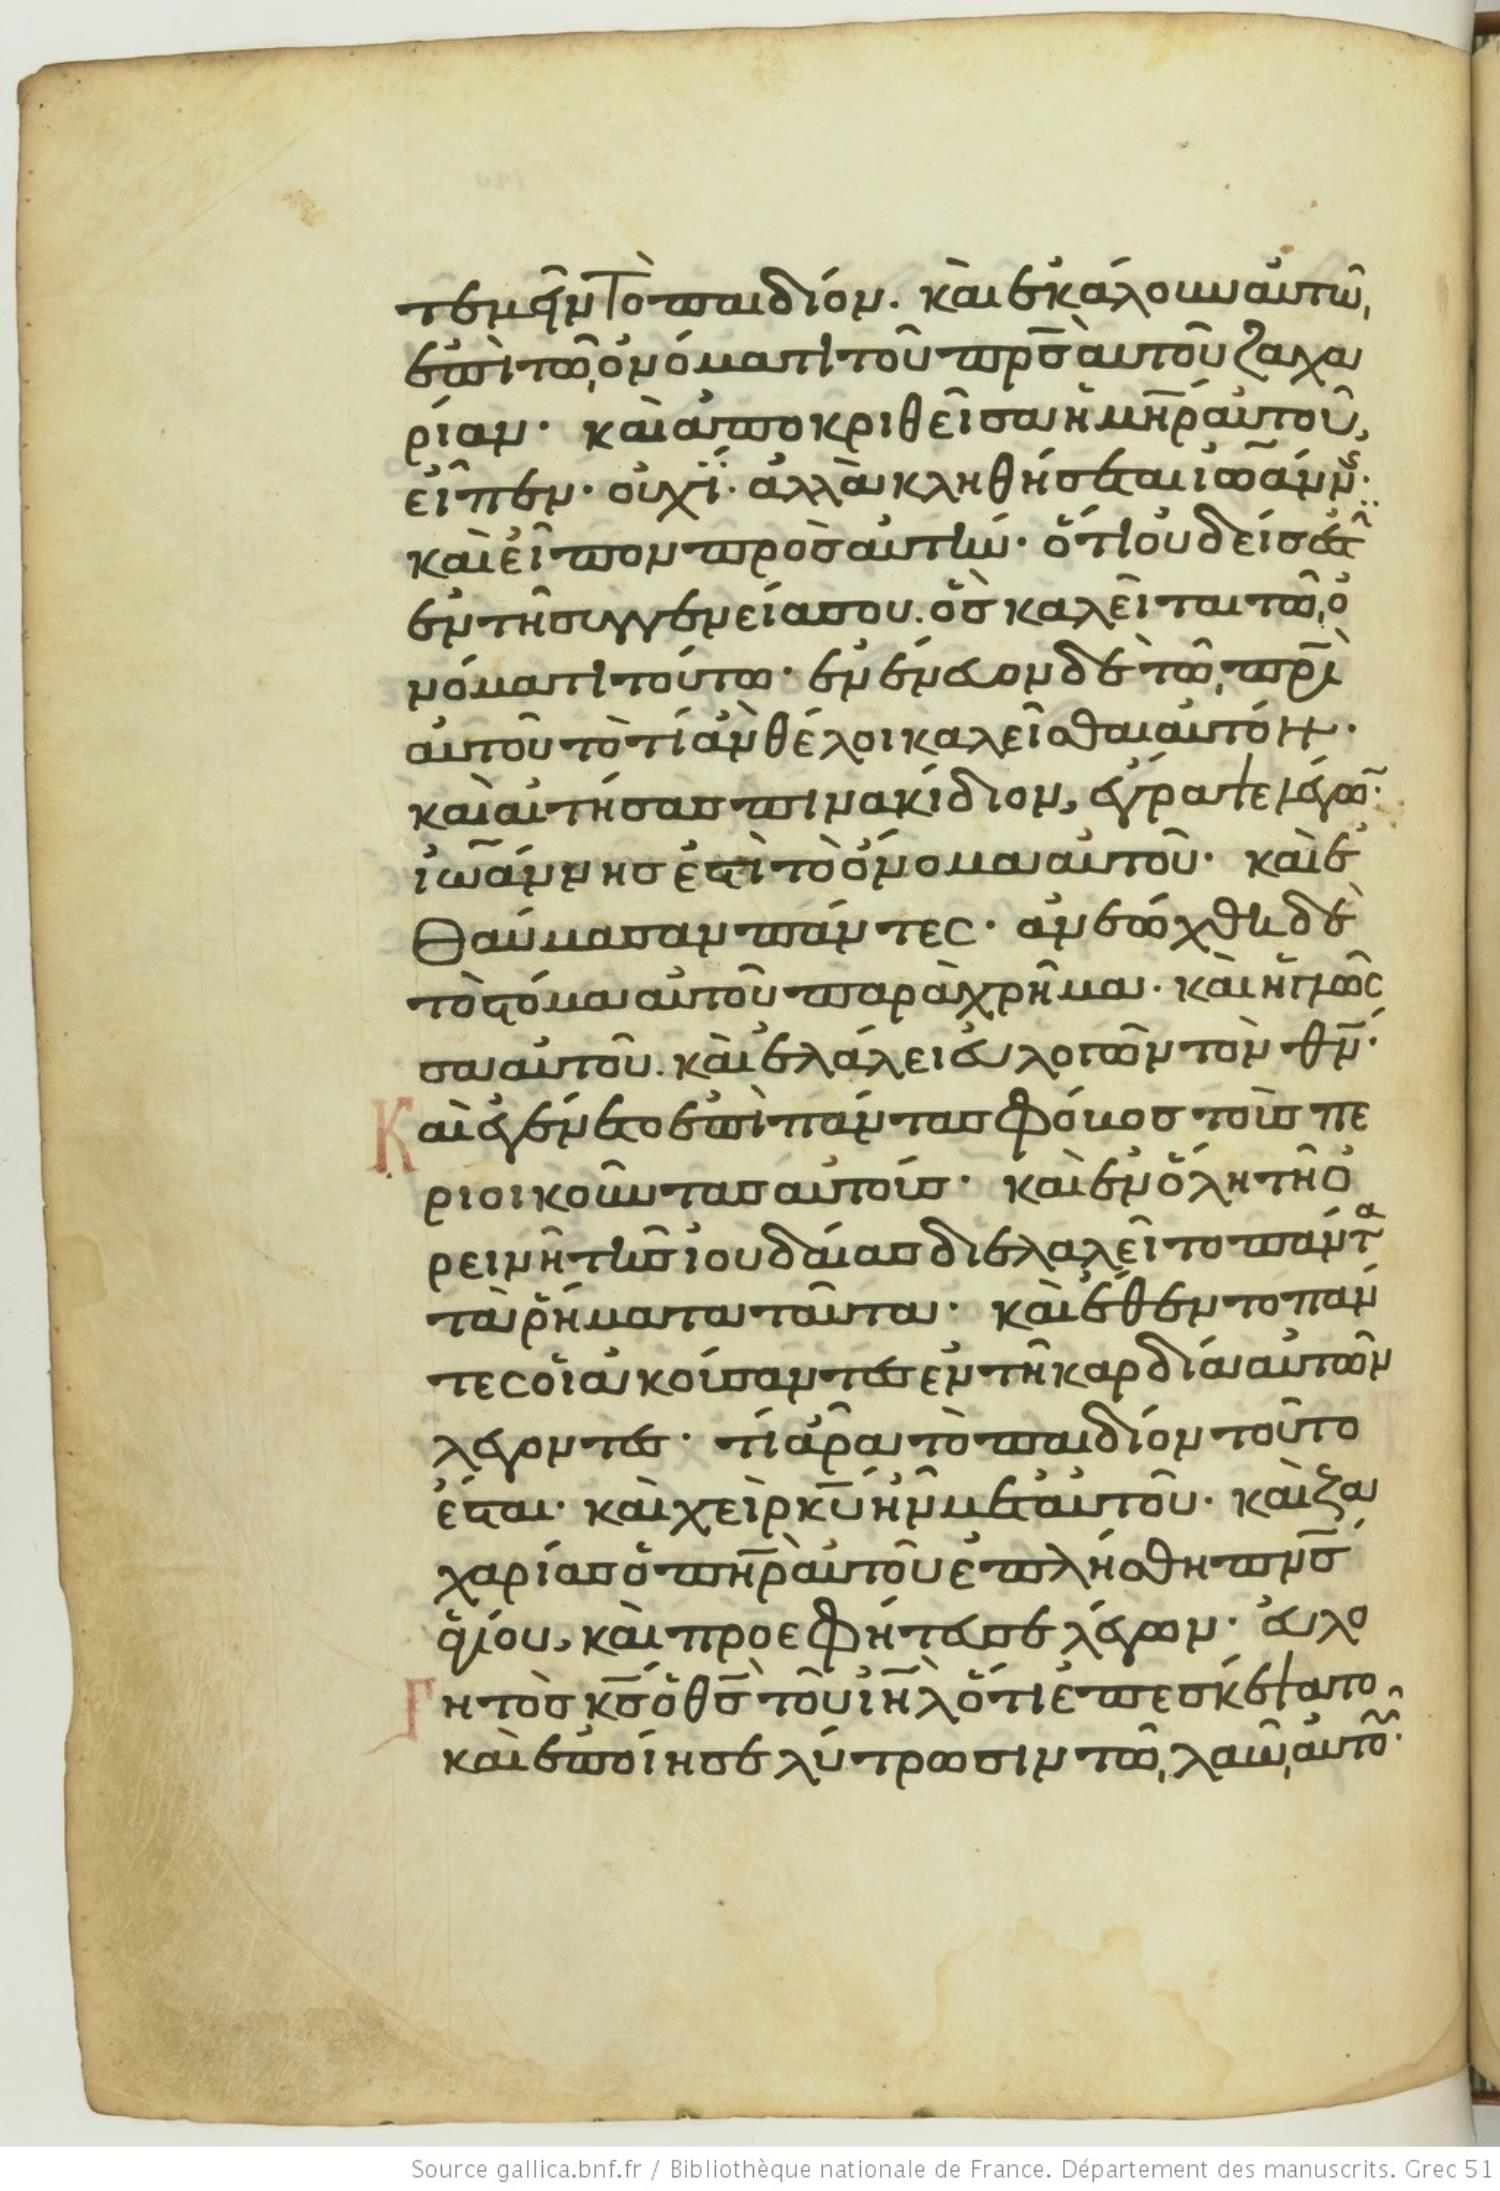 τεμεῖν τὸ παιδίον. καὶ ἐκάλουν αὐτῶ,
ἐπὶ τῶ, ὀνόματι τοῦ πρς̅ αὐτοῦ ζαχα
ρίαν· καὶ ἀποκριθεῖσα ἡ μη̅ρ αὐτοῦ,
εἶπεν· οὐχΐ· ἀλλὰ κληθήσεται ἰωάννης·
καὶ εἶπον πρὸς αὐτὴν· ὅτι οὐδείς ἐστὶν
ἐν τῆ συγγενεία σου. ὃς καλεῖται τῶ, ὀ
νόματι τούτω· ἐνένευον δὲ τῶ, πρι̅
αὐτοῦ τὸ τί ἂν θέλοι καλεῖσθαι αὐτόν·
καὶ αἰτήσας πινακίδιον, ἔγραψε λέγων·
ἰωάννης ἐστὶ τὸ ὄνομα αὐτοῦ· καὶ ἐ
θαύμασαν πάντες· ἀνεώχθη δὲ
τὸ στόμα αὐτοῦ παραχρῆμα· καὶ ἡ γλῶσ
σα αὐτοῦ. καὶ ἐλάλει εὐλογῶν τὸν θν̅·
Καὶ ἐγένετο ἐπὶ πάντας φόβος τοὺς πε
ριοικοῦντας αὐτούς· καὶ ἐν ὅλη τῆ ὀ
ρεινῆ τῆς ἰουδαίας διελαλεῖτο πάντα
τὰ ῥήματα ταῦτα· καὶ ἔθεντο πάν
τες οἱ ἀκούσαντες ἐν τῆ καρδία αὐτῶν
λέγοντες· τί ἆρα τὸ παιδίον τοῦτο
ἔσται· καὶ χεὶρ κυ̅ ἦν μετ' αὐτοῦ· καὶ ζα
χαρίας ὁ πη̅ρ αὐτοῦ ἐπλήσθη πνς̅
ἁγίου, καὶ προεφήτευσε λέγων· εὐλο
γητὸς κς̅ ὁ θς̅ τοῦ ιη̅λ ὅτι ἐπεσκέψατο
καὶ ἐποίησε λύτρωσιν τῶ, λαῶ, αὐτοῦ·
Source gallica.bnf.fr / Bibliothèque nationale de France. Département des manuscrits. Grec 51